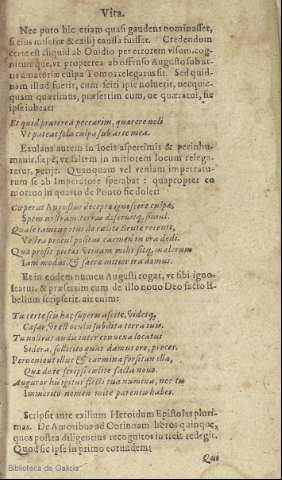 Vita.
Nec puto hîc etiam quasi gaudens nominasset,
si eius miseriæ & exilij caussa fuisset. Credendum
certe est aliquid ab Ouidio per errorem visum, cog-
nitumque, vt propterea ab offenso Augusto sub ar-
tis amatoriæ culpa Tomos relegatus sit. Sed quid-
nam illud fuerit, cum scisti ipse noluerit, nec que-
quam quæsiuus, præsertim cum, ne quæratur, sic
ipse iubeat:
Et quid præterea peccarim, quærere noli
Vt pateat sola culpa sub arte mea.
Exulans autem in locis asperrimis & perinhu-
manis, sæpè, vt saltem in mitiorem locum relega-
retur, petijt. Quanquam vel veniam impetratu-
rum se ab Imperatore sperabat: quapropter eo
mortuo in quarto de Ponto sic dolet:
Cœperat Augustus deceptæ ignoscere culpæ,
Spem nostram, terras deseruitq, simul.
Quale tamen potui de cælite Brute recenti,
Vestra procul positus carmen in ora dedi.
Quæ prosit pietas vtinam mihi sitq, malorum
Iam modus, & sacræ mitior ira domus.
Et in eodem numen Augusti rogat, vt sibi igno-
scatur, & præsertim cum de illo nouo Deo facto li-
bellum scripserit. ait enim:
Tu certe scis hæc superis ascite, videsq,
Cæsar, vt est oculis subdita terra tuis.
Tu nostras audis inter conuexa locatus
Sidera, sollicito quas damus ore, preces.
Perueniant istuc & carmina forsitan illa,
Quæ de te scripsi cælite facta nouo.
Auguror his igitur flecti tua numina, nec tu
Immeritò nomen mite parentis habes.
Scripsit ante exilium Heroidum Epistolas pluri-
mas. De Amoribus ad Corinnam libros quinque,
quos postea diligentius recognitos in treis redegit.
Quod sic ipse in primo eorundem:
Qui
Biblioteca de Galicia